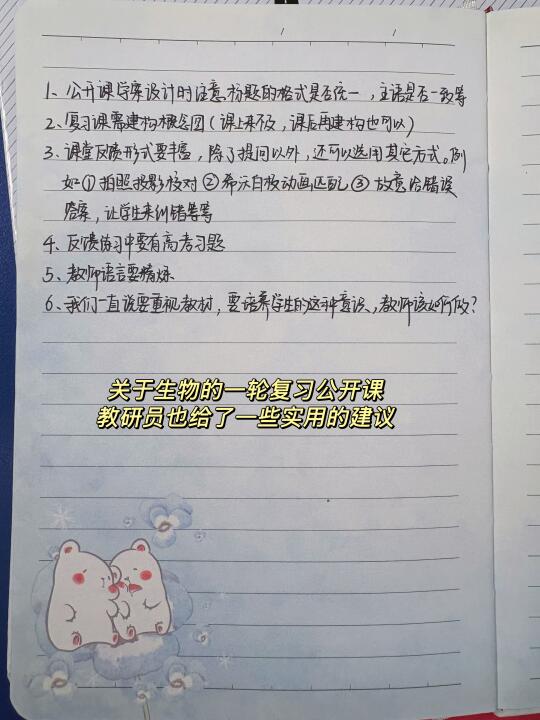 1、公开课学案设计时注意标题的格式是否统一，主语是否一致等
2、复习课需建构概念图（课上来不及，课后再建构也可以）
3、课堂反馈形式要丰富，除了提问以外，还可以选用其它方式。例
如①拍照投影核对②希沃白板动画匹配③故意给错误
答案，让学生来纠错等等
4、反馈练习中要有高考习题
5、教师语言要精炼
6、我们一直说要重视教材，要培养学生的这种意识，教师该如何做？
关于生物的一轮复习公开课
教研员也给了一些实用的建议